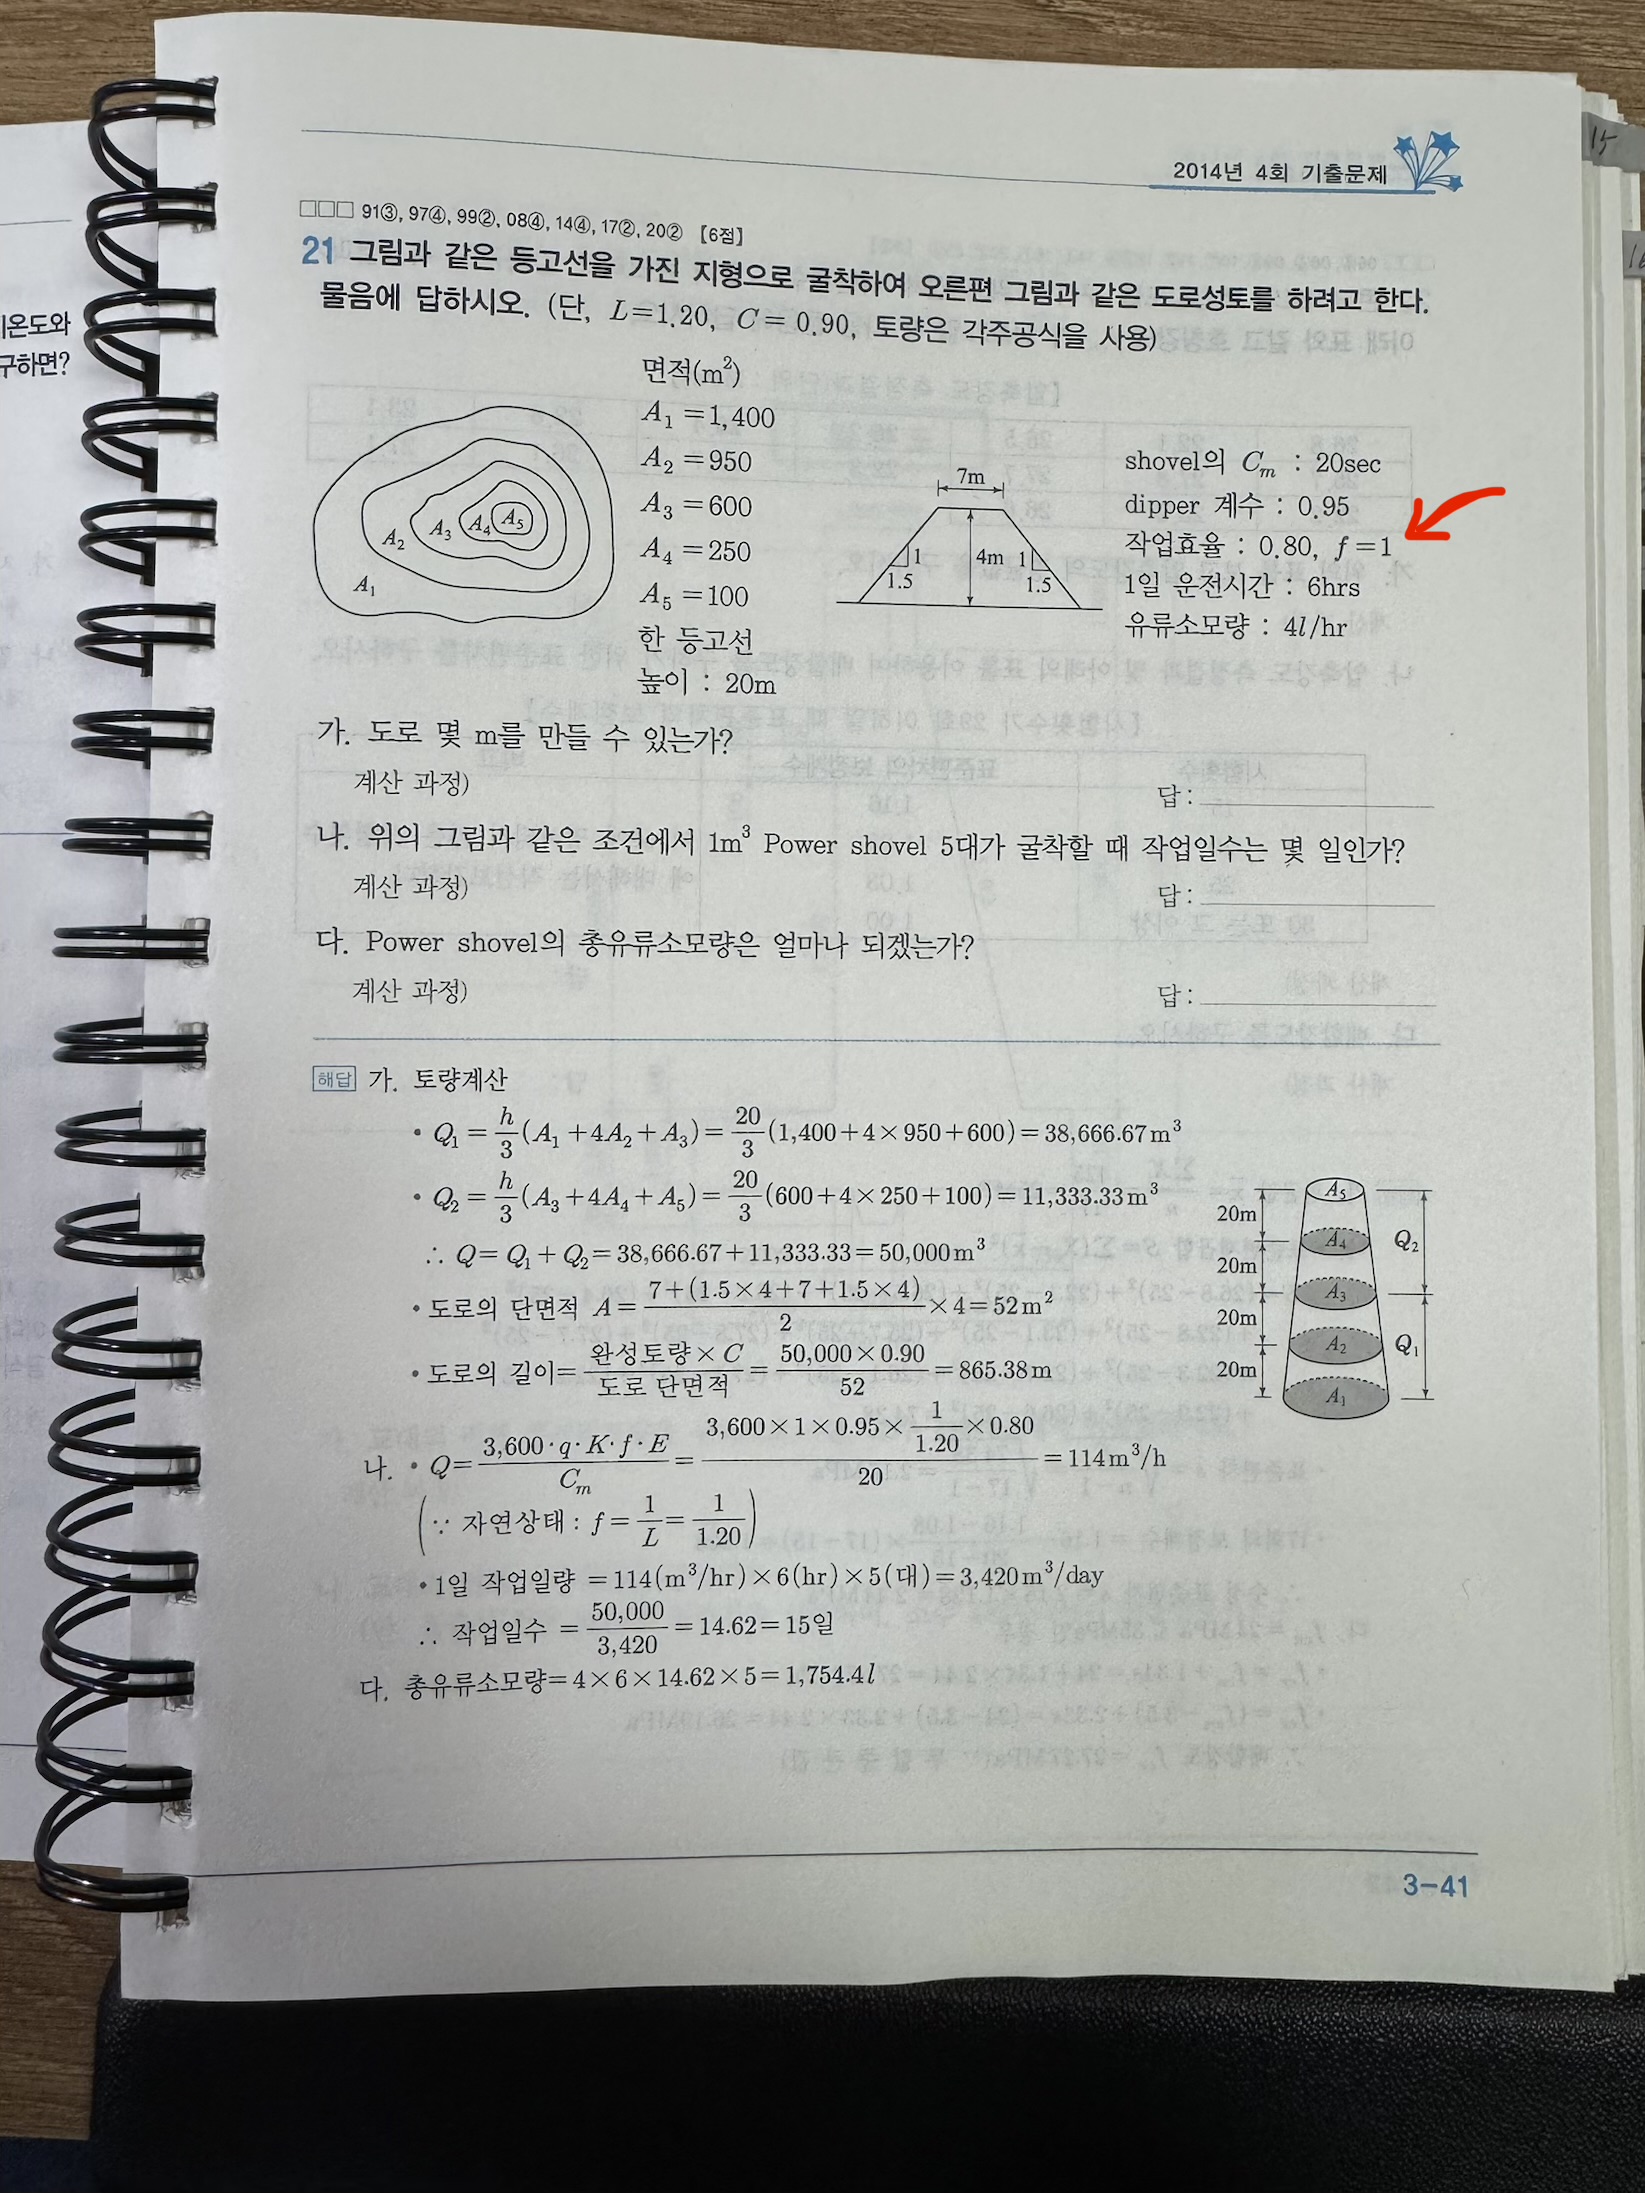 2014년 4회 기출문제
□□□ 91③, 97④, 99②, 08④, 14④, 17②, 20② 【6점】
21 그림과 같은 등고선을 가진 지형으로 굴착하여 오른편 그림과 같은 도로성토를 하려고 한다.
물음에 답하시오. (단, L=1.20, C=0.90, 토량은 각주공식을 사용)
A₁
A₂
A₃
A₄
A₅
면적(m²)
A₁=1,400
A₂=950
A₃=600
A₄=250
A₅=100
한 등고선
높이 : 20m
7m
4m
1
1.5
1
1.5
shovel의 Cₘ : 20sec
dipper 계수 : 0.95
작업효율 : 0.80, f=1
1일 운전시간 : 6hrs
유류소모량 : 4l/hr
가. 도로 몇 m를 만들 수 있는가?
계산 과정) 답 :
나. 위의 그림과 같은 조건에서 1m³ Power shovel 5대가 굴착할 때 작업일수는 몇 일인가?
계산 과정) 답 :
다. Power shovel의 총유류소모량은 얼마나 되겠는가?
계산 과정) 답 :
해답 가. 토량계산
• Q₁ = h/3 (A₁+4A₂+A₃) = 20/3 (1,400+4×950+600) = 38,666.67m³
• Q₂ = h/3 (A₃+4A₄+A₅) = 20/3 (600+4×250+100) = 11,333.33m³
∴ Q = Q₁+Q₂ = 38,666.67+11,333.33 = 50,000m³
• 도로의 단면적 A = 7+(1.5×4+7+1.5×4)/2 ×4 = 52m²
• 도로의 길이 = 완성토량×C/도로 단면적 = 50,000×0.90/52 = 865.38m
A₅
A₄
A₃
A₂
A₁
20m
20m
20m
20m
Q₂
Q₁
나. • Q = 3,600·q·K·f·E/Cₘ = 3,600×1×0.95×1/1.20×0.80/20 = 114m³/h
(∵ 자연상태 : f = 1/L = 1/1.20)
• 1일 작업일량 = 114(m³/hr)×6(hr)×5(대) = 3,420m³/day
∴ 작업일수 = 50,000/3,420 = 14.62 = 15일
다. 총유류소모량 = 4×6×14.62×5 = 1,754.4l
3-41
기온도와
구하면?
15